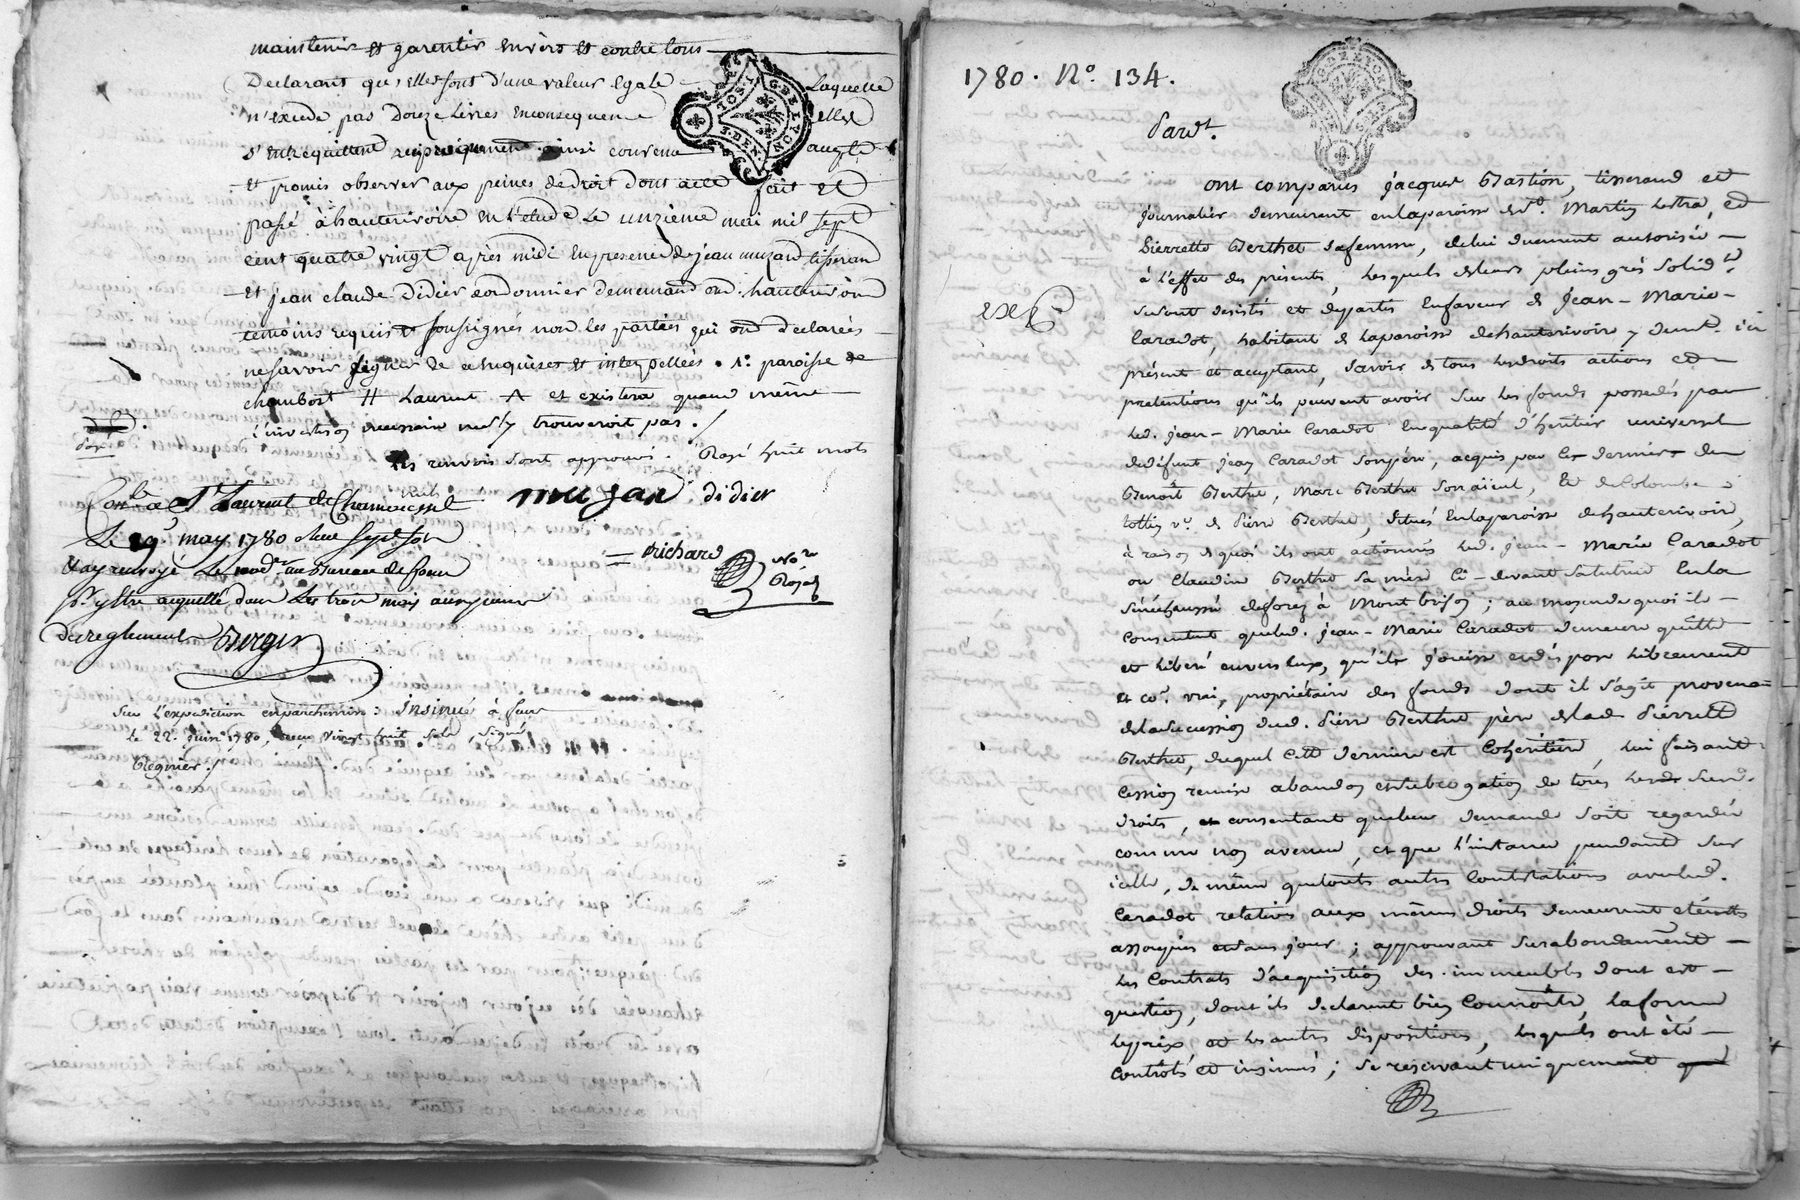 maintenir et garentir envers et contre tous
Declarant qu'elles sont d'une valeur egale laquelle
n'excede pas douze Livres en consequence elles
s'entrequittent reciproquement ainsi convenu
et promis observer aux peines de droit dont acte fait et
passé à hauterivoire en l'etude le unzieme mai mil sept
cent quatre vingt après midi en presence de jean muzard tisseran
et jean claude Didier cordonnier demeurant aud. hauterivoire
temoins requis et soussignés non les parties qui ont declarées
ne savoir signer de ce requises et interpellées. 1.° paroisse de
chambost # Laurent A et existera quand même
l'inversion necessaire ne s'y trouveroit pas./
les renvois sont approuvés. Rasé huit mots
nuls
mujard didier
Con.lé a St Laurent de Chamousset
Le 19. may 1780 Reçu sept sols
et ay renvoyé le mod.e au Bureau de feurs
p.r y être acquitté dans les trois mois à rigueur
du reglement Berger
richard
No.re
Royal
Sur l'expedition en parchemin: insinué à feurs
le 22. juin 1780, reçu vingt huit sols, signé
Regnier./
G. DE LYON
1780. N.° 134.
G. DE LYON
Pardt.
Ont comparus jacques Bastion, tisserand et
journalier demeurant en la paroisse de St. Martin Lestra, et
Pierrette Berthet sa femme, de lui duement autorisée
à l'effet des présentes, lesquels de leurs pleins grés solid.t
se sont desistés et departis en faveur de jean-Marie
exp.
Caradot, habitant de la paroisse de hauterivoire y demt. ici
présent et acceptant, savoir de tous les droits actions et
prétentions qu'ils peuvent avoir sur les fonds possedés par
led. jean-Marie Caradot en qualité d'héritier universel
de défunt jean Caradot son père, acquis par ce dernier de
Benoît Berthet, Marc Berthet son aïeul, et de Colombe
v.e de Pierre Berthet, situés en la paroisse de hauterivoire,
à raison de quoi ils ont actionnés led. jean-Marie Caradot
ou Claudine Berthet sa mère ci-devant sa tutrice en la
sénéchaussée de forez à Montbrison; au moyen de quoi ils
consentent que led. jean-Marie Caradot demeure quitte
et libéré envers eux, qu'il jouisse et dispose librement
et co.e vrai, propriétaire des fonds dont il s'agit provenant
de la succession dud. Pierre Berthet père de lad. Pierrette
Berthet, duquel cette dernière est cohéritière, lui faisant
cession remise abandon et subrogation de tous leursd.
droits, et consentant que leur demande soit regardée
comme non avenue, et que l'instance pendante sur
icelle, de même que toutes autres contestations avec led.
Caradot relatives aux mêmes droits demeurent eteintes
assoupies et sans jour; approuvant surabondamment
les Contrats d'acquisition des immeubles dont est
question, dont ils declarent bien connoître, la forme
le prix et les autres dispositions, lesquels ont été
contrôlés et insinués; se reservant uniquement que